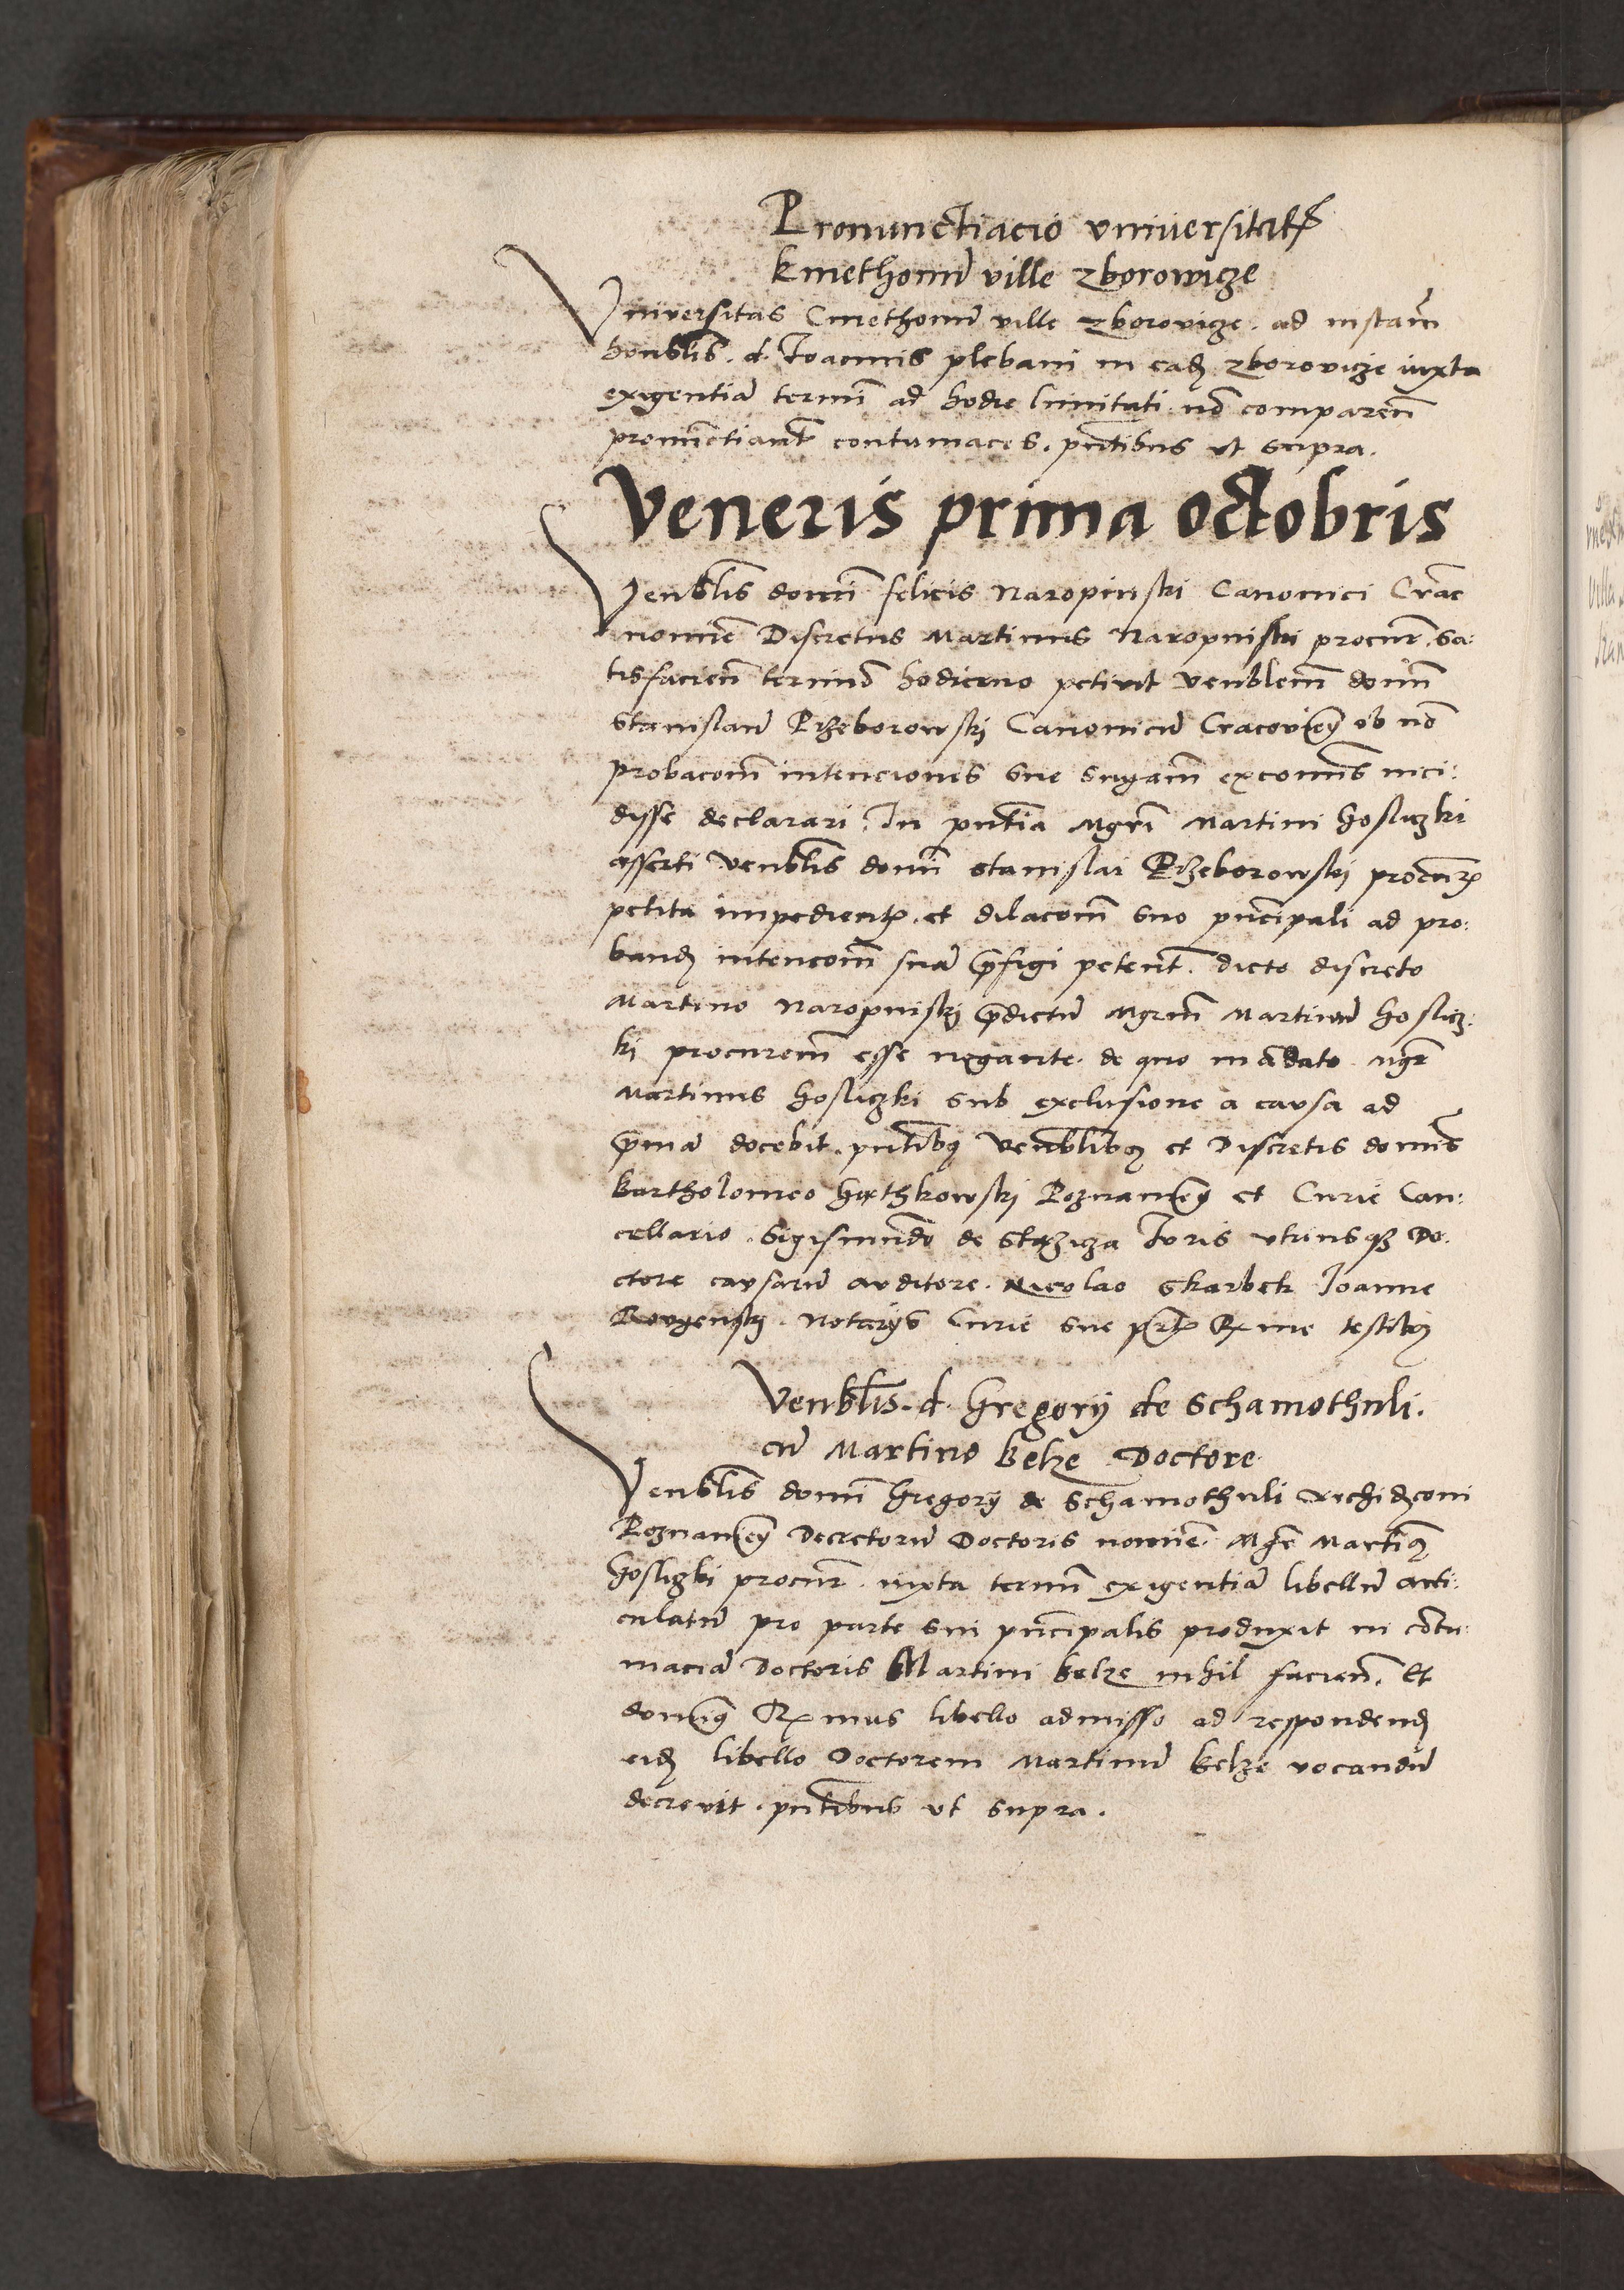 Pronunctiacio universitatꝭ
kmethonū ville zborowicze
Vniversitas Cmethonū ville zborovicze. ad instan̄
honblis̄. d. Joannis plebani in eadꝫ zborovicze iuxta
exigentiā termī ad hodie limitati nō comparen̄
pronūctiant̄ contumaces. pn̄tibus ut supra.
Veneris prima octobris
Venblis̄ domī felicis Naropinski Canonici Crac̄
nomie̅ Discretus Martinus Naropinski procur̄. sa:
tisfacien̄ termino hodierno petivit venblem̄ domī̄
Stanislaū Rzeborowskj Canonicū Cracovien̄ ob nō
probacom̄ intencionis sue sugam̄ excomīs inci:
disse declarari. In pn̄tia Mgrī Martini hosliczki
asserti venblis̄ domī Stanislai Rzeborowskj procurꝭ
petita impedientꝭ. et dilacom̄ suo pn̄cipali ad pro:
bandꝫ intencom̄ suā p̄figi petent̄. dicto discreto
Martino Naropinskj p̄dictū Mgrm̄ Martinū hoslicz:
ki procurem̄ esse negante. de quo mādato Mgr̄
Martinus hosliczki sub exclusione a causa ad
p̄mā docebit. pn̄tibꝫ venblibꝫ et Discretis domīs
Bartholomeo Poznanien̄ et Curie Can:
cellario. Sigismūdo de Juris utriusqꝫ Do:
ctore causarū auditore. Nicolao Skarbek Joanne
Notarijs Curie sue testibꝫ
Venblis̄. d. Gregorij de Schamothuli.
cū Martino belze Doctore
Venblis̄ domī Gregorij de Schamothuli Archidꝫconi
Poznanien̄ Decretorū Doctoris nomie̅. Mgr̄ Martinꝫ
hosliczki procur̄. iuxta termī exigentiā libellū arti:
culatū pro parte sui pn̄cipalis produxit in cōtu:
maciā Doctoris Martini belze nihil facien̄. Et
dominꝫ Rx̄mus libello admisso ad respondendꝫ
eidꝫ libello Doctorem Martinū belze vocandū
decrevit. pn̄tibus ut supra.